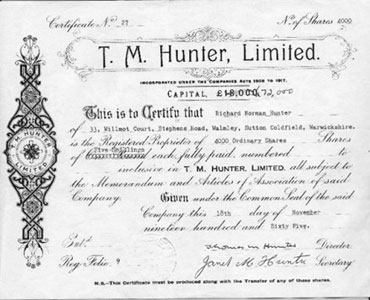 Certificate No. 27 No. of Shares 4000
T. M. Hunter, Limited.
INCORPORATED UNDER THE COMPANIES ACTS 1908 TO 1917.
CAPITAL, £18,000 72,000
This is to Certify that Richard Norman Hunter
of 33, Willmot Court, Stephens Road, Walmley, Sutton Coldfield, Warwickshire.
is the Registered Proprietor of 4000 Ordinary Shares Shares
of Five Shillings each, fully paid, numbered to
inclusive in T. M. HUNTER, LIMITED, all subject to
the Memorandum and Articles of Association of said
Company. Given under the Common Seal of the said
Company this 18th day of November
nineteen hundred and Sixty Five.
Hunter Director
Entd.
Reg. Folio 9 Janet M Hunter Secretary
N.B.—This Certificate must be produced along with the Transfer of any of these shares.
T. M. HUNTER
LIMITED